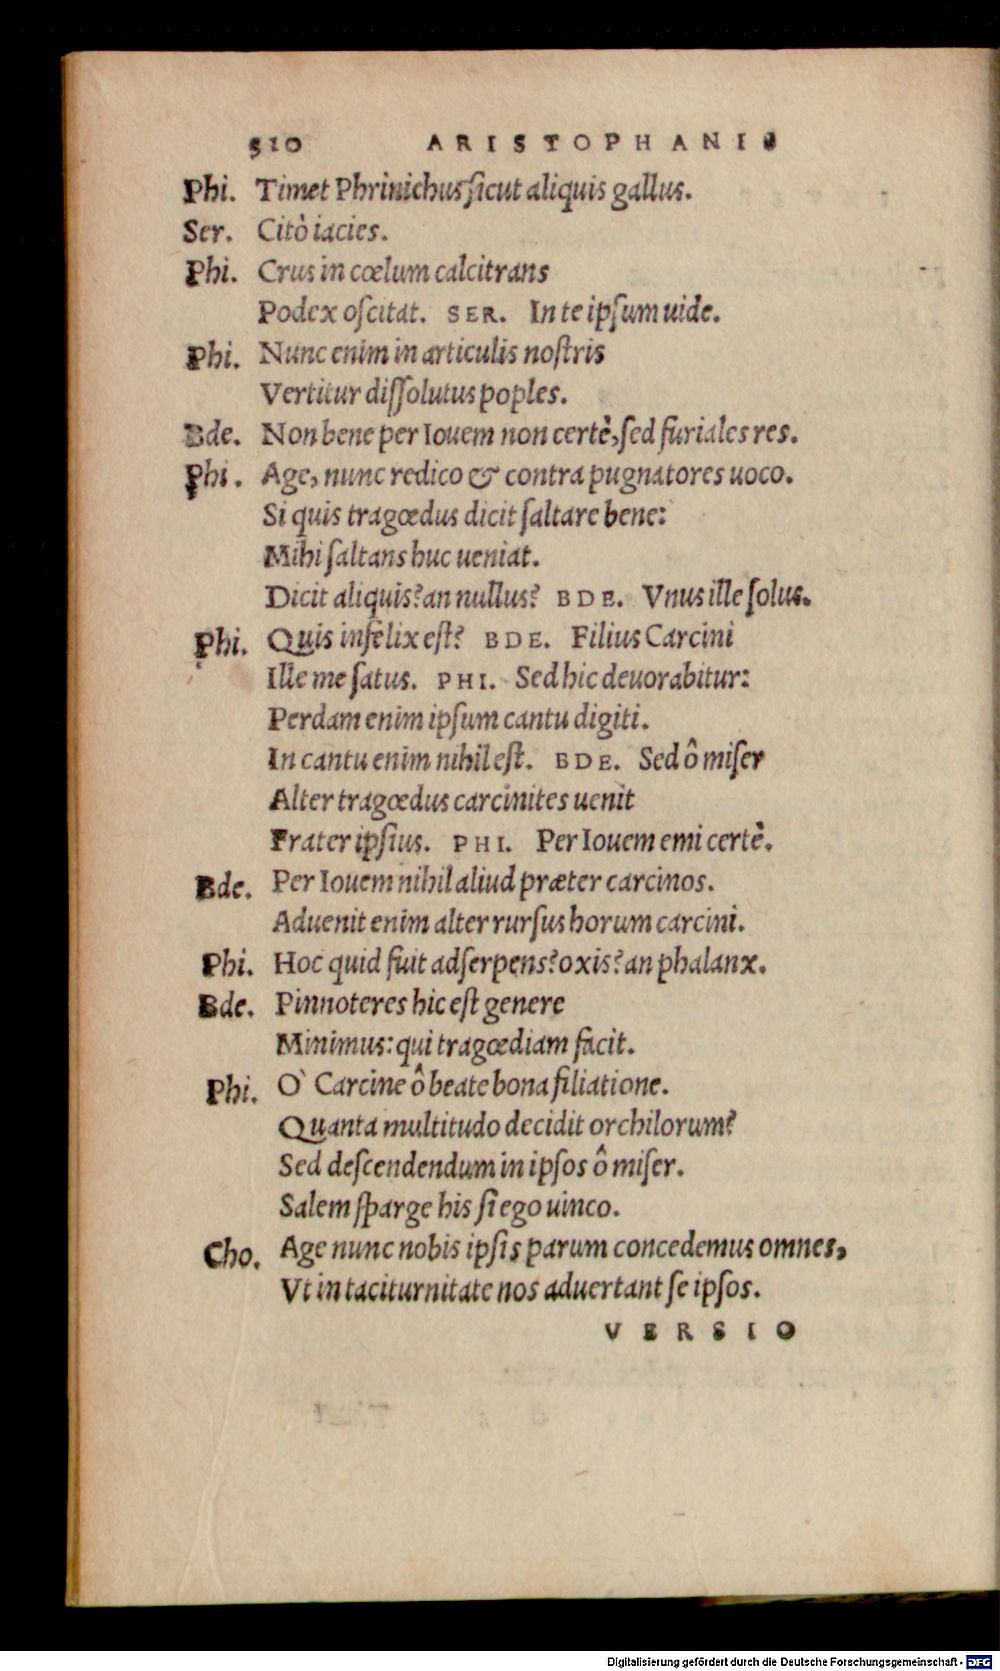 510 ARISTOPHANIS
Phi. Timet Phrinichus sicut aliquis gallus.
Ser. Citò iacies.
Phi. Crus in cœlum calcitrans
Podex oscitat. SER. In te ipsum uide.
Phi. Nunc enim in articulis nostris
Vertitur dissolutus poples.
Bde. Non bene per Iouem non certè, sed furiales res.
Phi. Age, nunc redico & contra pugnatores uoco.
Si quis tragœdus dicit saltare bene:
Mihi saltans huc ueniat.
Dicit aliquis? an nullus? BDE. Vnus ille solus.
Phi. Quis infelix est? BDE. Filius Carcini
Ille me satus. PHI. Sed hic deuorabitur:
Perdam enim ipsum cantu digiti.
In cantu enim nihil est. BDE. Sed ô miser
Alter tragœdus carcinites uenit
Frater ipsius. PHI. Per Iouem emi certè.
Bde. Per Iouem nihil aliud præter carcinos.
Aduenit enim alter rursus horum carcini.
Phi. Hoc quid fuit adserpens? oxis? an phalanx.
Bde. Pinnoteres hic est genere
Minimus: qui tragœdiam facit.
Phi. O` Carcine ô beate bona filiatione.
Quanta multitudo decidit orchilorum?
Sed descendendum in ipsos ô miser.
Salem sparge his si ego uinco.
Cho. Age nunc nobis ipsis parum concedemus omnes,
Vt in taciturnitate nos aduertant se ipsos.
VERSIO
Digitalisierung gefördert durch die Deutsche Forschungsgemeinschaft - DFG